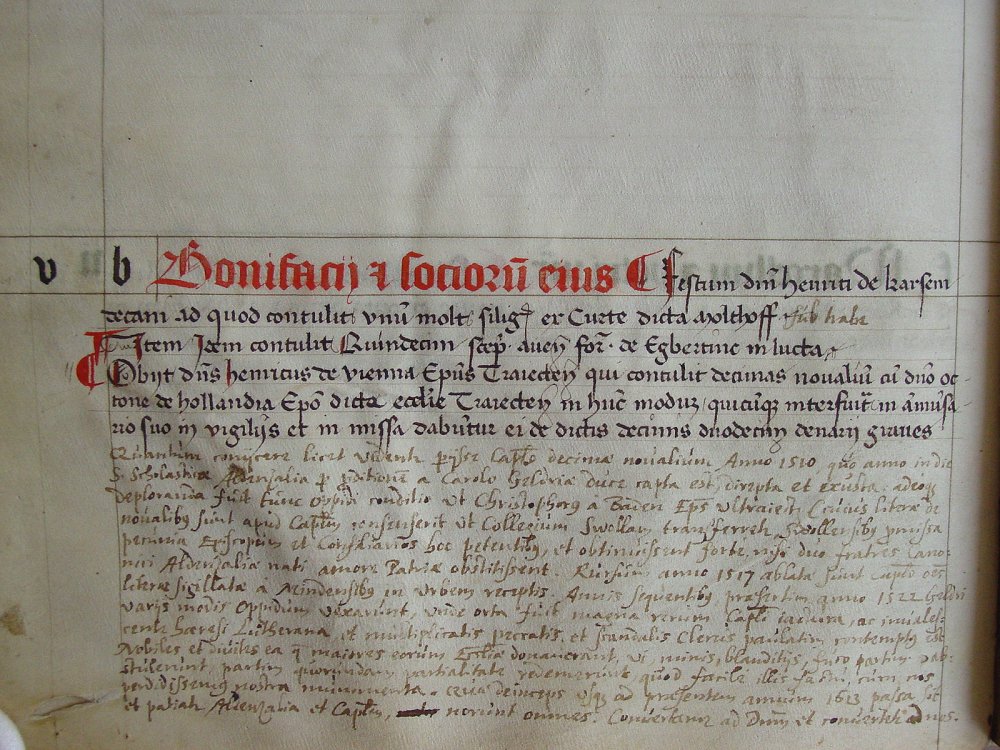 v b Bonifacij et sociorū eius Festum dm̄ henrici de karsem
decani ad quod contulit vnū molt silig ex Curte dicta Molthoff
Item Idem contulit Quindecim scep aven for de Egbertinc in lucta
Obijt dns henricus de vienna Epūs Traiecten qui contulit decimas novaliū cū dno oc
tone de hollandia Epo dicte ecclie Traiecten in hūc modū quicūq interfuit in anīusa
rio suo in vigilijs et in missa dabūtur ei de dictis decimis duodecim denarij graves
Quantum conijcere licet videntr perijsse Caplo decimæ novalium Anno 1510 quo anno in die
S. Scholasticæ Aldenzalia p proditione a Carolo Geldriæ duce capta est, direpta et exusta. adeoq
deploranda fuit tunc oppidi conditio ut Christophorq à Baden Eps Ultraiect Cuius literæ de
novalibq sunt apud Caplm consenserit ut Collegium Swollam transferretr, Swollensibq pmissa
pecunia Episcopum et Consiliarios hoc petentibq, et obtinuissent forte, nisi duo fratres Cano-
nici Aldenzaliæ nati amore Patriæ obstitissent. Rursum anno 1517 ablatæ sunt Caplo oēs
literæ sigillatæ a Mindensibq in urbem receptis. Annis sequentibq præsertim anno 1522 Geldri
varijs modis Oppidum vexarunt, unde orta fuit magna rerum Capli iactura, ac invales-
cente hæresi Lutherana, et multiplicatis peccatis, et scandalis Clerus paulatim contemptq est
Nobiles et divites ea q maiores eorum Ecclīæ donauerant, vi, minis, blanditijs, furo partim abs-
tulerunt, partim quorundam partialitate redemerunt, quod facile illis factu, cum nos
perdidissemq nostra munimenta. Quæ deinceps usq ad præsentem annum 1613 passa sit
et patiatr Aldenzalia et Caplm, norunt omnes. Convertamur ad Dnm et convertetr ad nos.